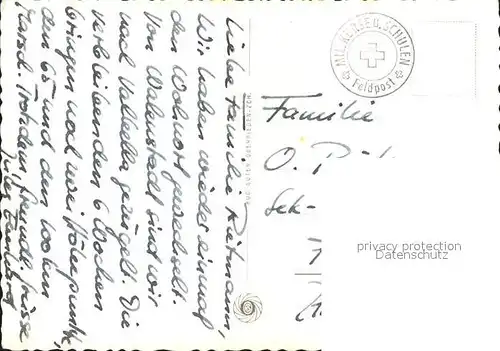 Liebe Familie Rietmann,
Wir haben wieder einmal
den Wohnort gewechselt.
Von Walenstadt sind wir
nach Valbella gezügelt. Die
verbleibenden 6 Wochen
bringen noch zwei Höhepunkte,
den 65 und den 100 km
Marsch. Trotzdem freundl. Grüsse
MIL. KURSE U. SCHULEN
Feldpost
Familie
O. P
Sek-
privacy protection
Datenschutz